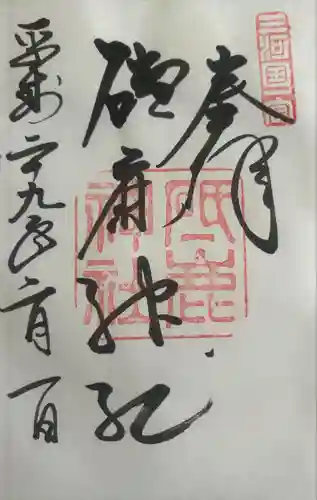 三河国一宮
奉拝
砥鹿神社
砥鹿
神社
平成二十九年二月一日